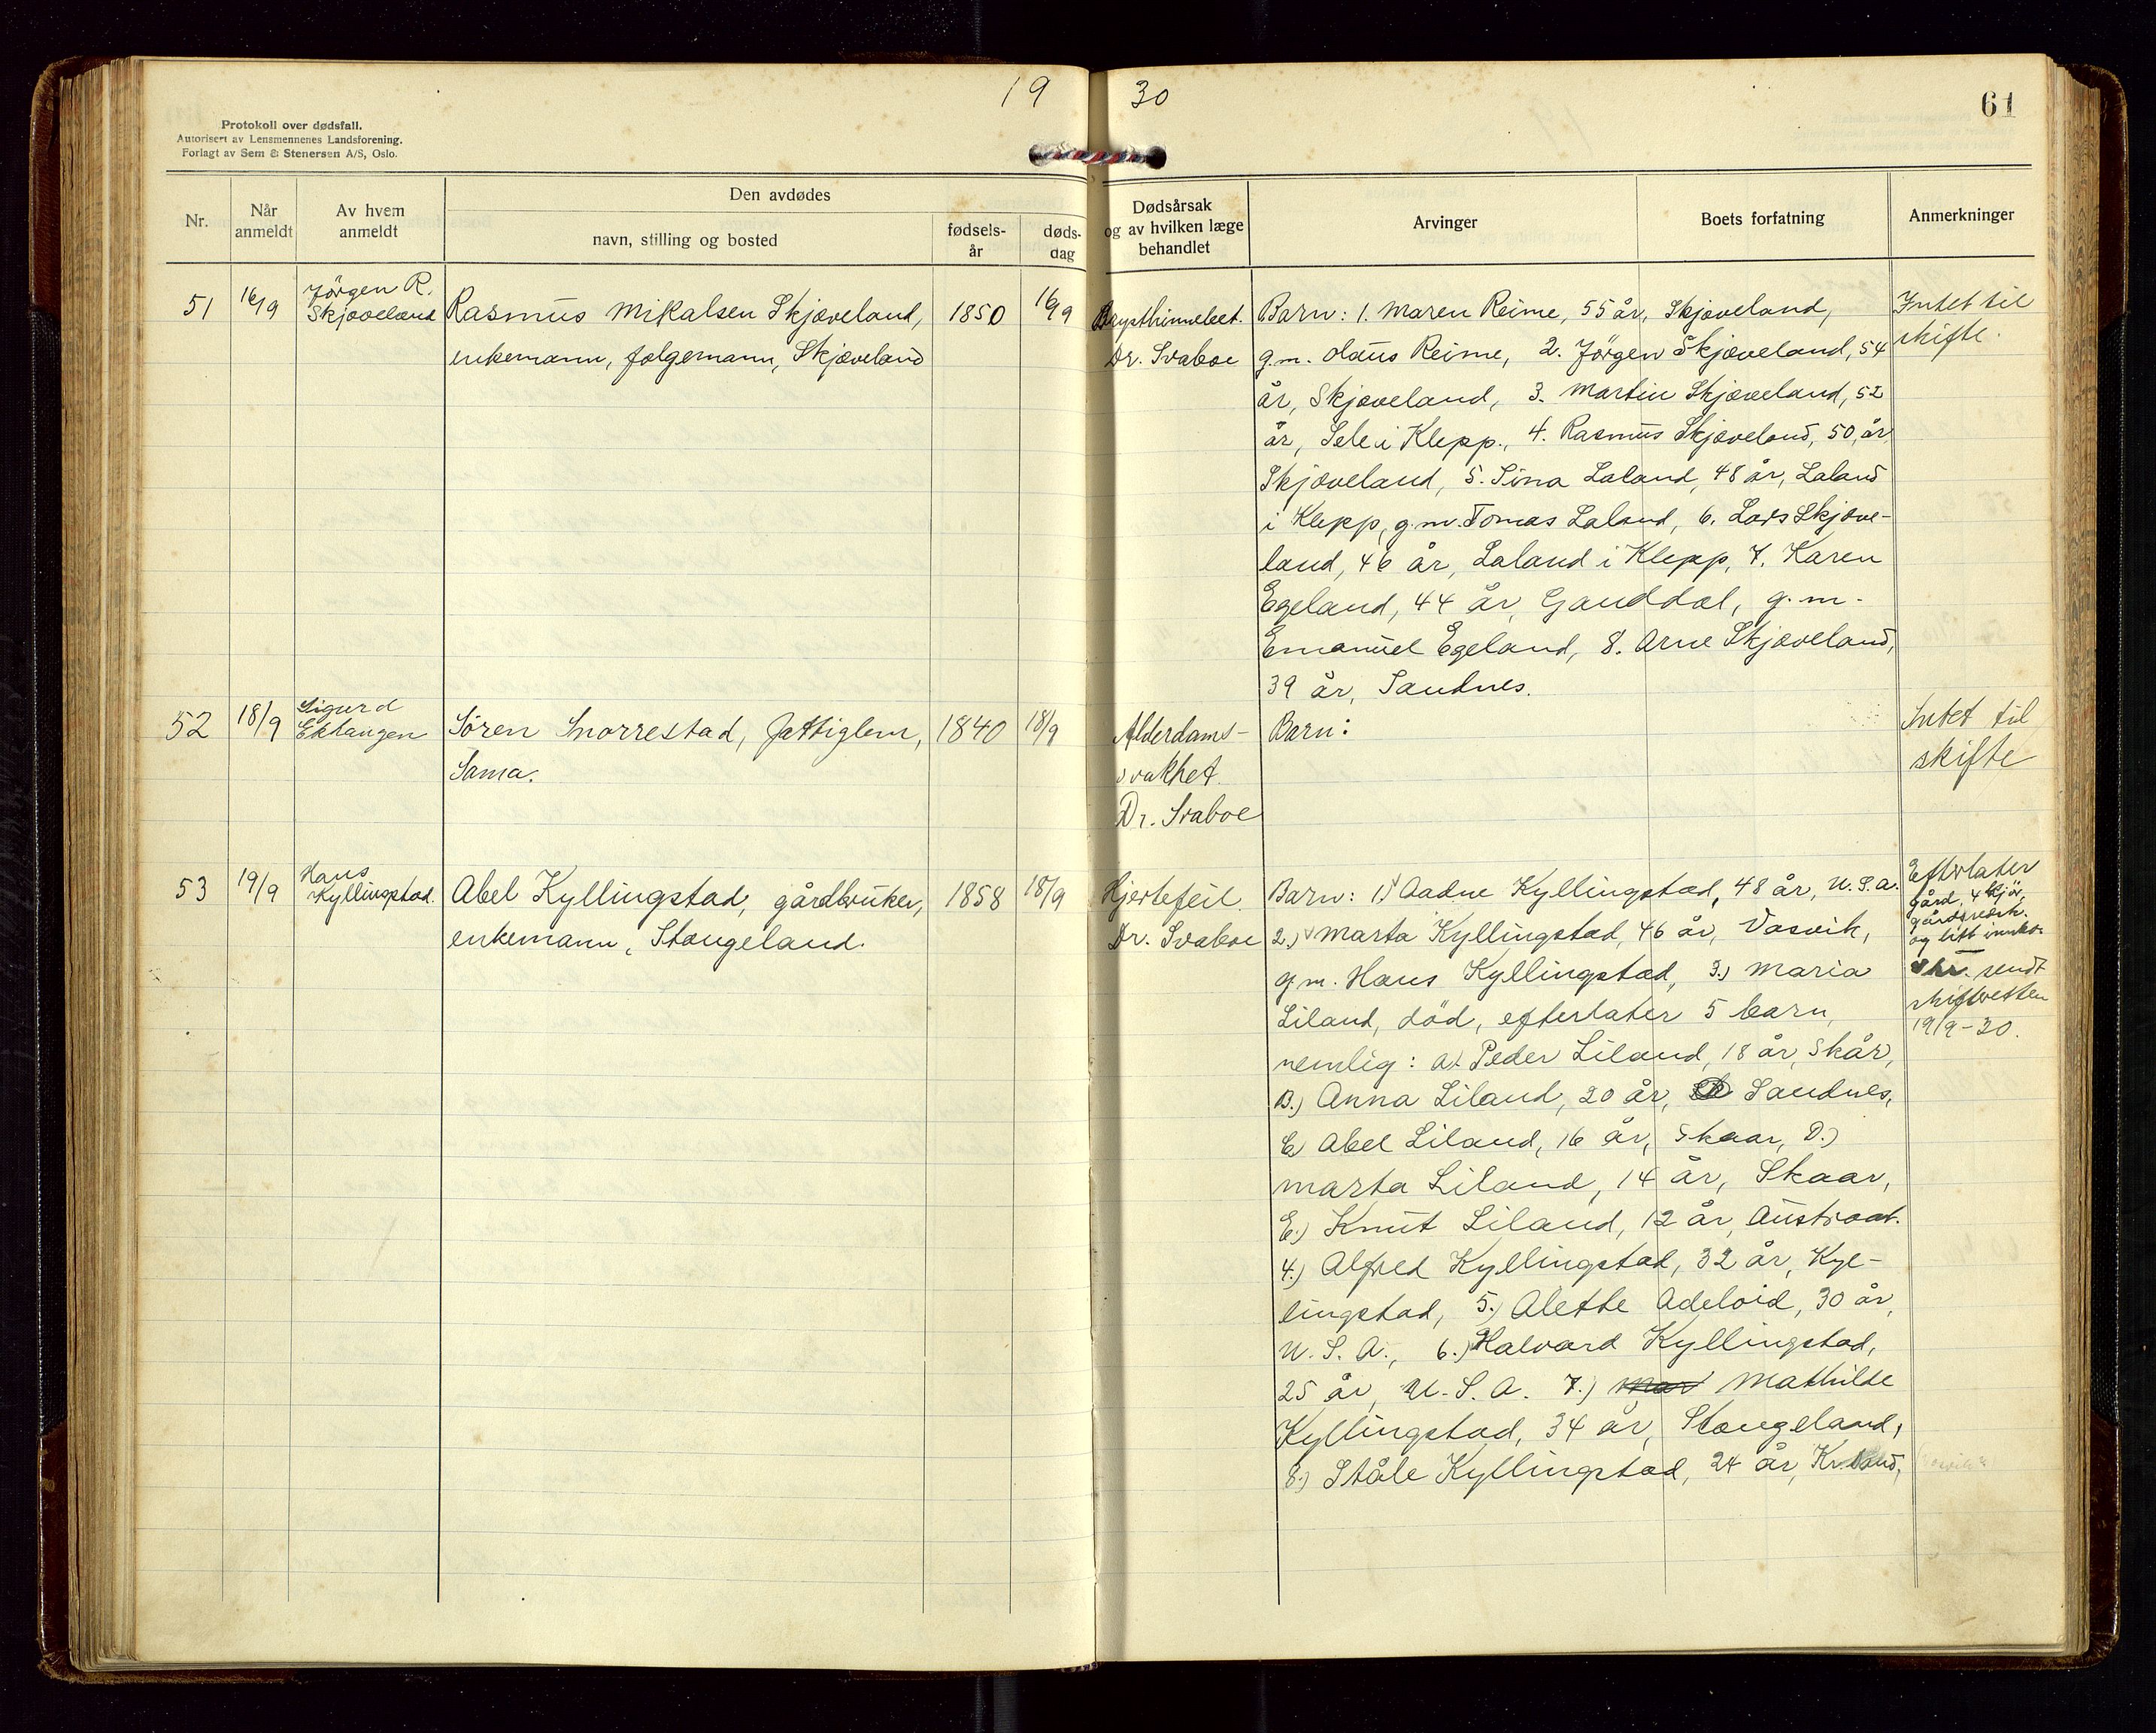 19 30
61
Protokoll over dødsfall.
Autorisert av Lensmennenes Landsforening.
Forlagt av Sem & Stenersen A/S, Oslo.
Nr.
Når anmeldt
Av hvem anmeldt
Den avdødes
navn, stilling og bosted
fødsels-år
døds-dag
Dødsårsak
og av hvilken læge
behandlet
Arvinger
Boets forfatning
Anmerkninger
51
16/9
Jörgen R.
Skjæveland
Rasmus Mikalsen Skjæveland,
enkemann, folgemann, Skjæveland
1850
16/9
Brysthinnebet.
Dr. Svaboe
Barn: 1. Maren Reime, 55 år, Skjæveland,
g.m. Olaus Reime, 2. Jörgen Skjæveland, 54
år, Skjæveland, 3. Martin Skjæveland, 52
år, Sele i Klepp., 4. Rasmus Skjæveland, 50, år
Skjæveland, 5. Sina Laland, 48 år, Laland
i Klepp, g.m. Tomas Laland, 6. Lars Skjæve-
land, 46 år, Laland i Klepp, 7. Karen
Egeland, 44 år, Ganddal, g.m.
Emanuel Egeland, 8. Arne Skjæveland,
39 år, Sandnes.
Intet til
skifte.
52
18/9
Sigurd
Ektangen
Sören Snorrestad, fattiglem,
Soma.
1840
18/9
Alderdams-
svakhet.
Dr. Svaboe
Barn:
Intet til
skifte
53
19/9
Hans
Kyllingstad.
Abel Kyllingstad, gårdbruker,
enkemann, Stangeland.
1858
18/9
Hjertefeil.
Dr. Svaboe
Barn: 1) Aadne Kyllingstad, 48 år, U.S.A.
2.) Marta Kyllingstad, 46 år, Vasvik,
g.m. Hans Kyllingstad, 3.) Maria
Liland, död, efterlater 5 barn,
nemlig: a). Peder Liland, 18 år, Skår,
B.) Anna Liland, 20 år, Sandnes,
C) Abel Liland, 16 år, Skaar, D.)
Marta Liland, 14 år, Skaar,
E.) Knut Liland, 12 år, Austraat.
4.) Alfred Kyllingstad, 32 år, Kyl-
lingstad, 5.) Alette Adeloid, 30 år,
U.S.A., 6.) Halvard Kyllingstad,
25 år, U.S.A. 7.) Mar Mathilde
Kyllingstad, 34 år, Stangeland,
8.) Ståle Kyllingstad, 24 år, Kr.sand,
Efterlater
gård, 4 kjör,
gårdsredsk.
og litt innbo.
sendt
skifteretten
19/9-30.